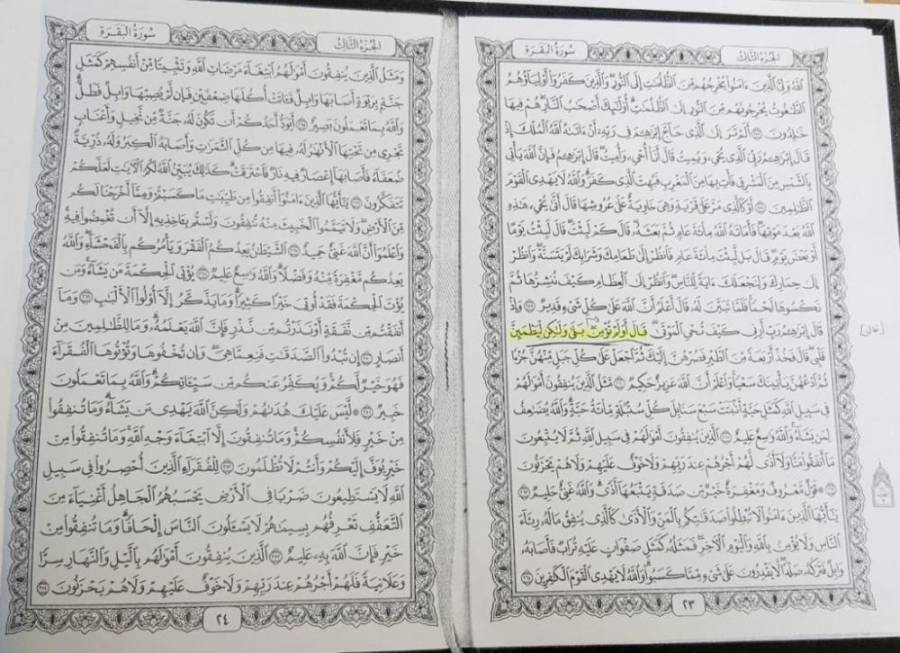 الجزء الثالث
سورة البقرة
الله ولي الذين ءامنوا يخرجهم من الظلمت إلى النور والذين كفروا أولياؤهم
الطغوت يخرجونهم من النور إلى الظلمت أولئك أصحب النار هم فيها
خلدون ألم تر إلى الذي حاج إبرهم في ربه أن ءاتىه الله الملك إذ
قال إبرهم ربي الذي يحي ويميت قال أنا أحي وأميت قال إبرهم فإن الله يأتي
بالشمس من المشرق فأت بها من المغرب فبهت الذي كفر والله لا يهدي القوم
الظلمين أو كالذي مر على قرية وهي خاوية على عروشها قال أنى يحي هذه
الله بعد موتها فأماته الله مائة عام ثم بعثه قال كم لبثت قال لبثت يوما
أو بعض يوم قال بل لبثت مائة عام فانظر إلى طعامك وشرابك لم يتسنه وانظر
إلى حمارك ولنجعلك ءاية للناس وانظر إلى العظام كيف ننشزها ثم
نكسوها لحما فلما تبين له قال أعلم أن الله على كل شيء قدير وإذ
قال إبرهم رب أرني كيف تحي الموتى قال أولم تؤمن بلى ولكن ليطمئن
قلبي قال فخذ أربعة من الطير فصرهن إليك ثم اجعل على كل جبل منهن جزءا
ثم ادعهن يأتينك سعيا واعلم أن الله عزيز حكيم مثل الذين ينفقون أمولهم
في سبيل الله كمثل حبة أنبتت سبع سنابل في كل سنبلة مائة حبة والله يضعف
لمن يشاء والله وسع عليم الذين ينفقون أمولهم في سبيل الله ثم لا يتبعون
ما أنفقوا منا ولا أذى لهم أجرهم عند ربهم ولا خوف عليهم ولا هم يحزنون
قول معروف ومغفرة خير من صدقة يتبعها أذى والله غني حليم
يأيها الذين ءامنوا لا تبطلوا صدقتكم بالمن والأذى كالذي ينفق ماله رئاء
الناس ولا يؤمن بالله واليوم الآخر فمثله كمثل صفوان عليه تراب فأصابه
وابل فتركه صلدا لا يقدرون على شيء مما كسبوا والله لا يهدي القوم الكفرين
٢٣
الجزء الثالث
سورة البقرة
ومثل الذين ينفقون أمولهم ابتغاء مرضات الله وتثبيتا من أنفسهم كمثل
جنة بربوة أصابها وابل فءاتت أكلها ضعفين فإن لم يصبها وابل فطل
والله بما تعملون بصير أيود أحدكم أن تكون له جنة من نخيل وأعناب
تجري من تحتها الأنهر له فيها من كل الثمرت وأصابه الكبر وله ذرية
ضعفاء فأصابها إعصار فيه نار فاحترقت كذلك يبين الله لكم الآيت لعلكم
تتفكرون يأيها الذين ءامنوا أنفقوا من طيبت ما كسبتم ومما أخرجنا لكم
من الأرض ولا تيمموا الخبيث منه تنفقون ولستم بءاخذيه إلا أن تغمضوا فيه
واعلموا أن الله غني حميد الشيطن يعدكم الفقر ويأمركم بالفحشاء والله
يعدكم مغفرة منه وفضلا والله وسع عليم يؤتي الحكمة من يشاء ومن
يؤت الحكمة فقد أوتي خيرا كثيرا وما يذكر إلا أولوا الألبب وما
أنفقتم من نفقة أو نذرتم من نذر فإن الله يعلمه وما للظلمين من
أنصار إن تبدوا الصدقت فنعما هي وإن تخفوها وتؤتوها الفقراء
فهو خير لكم ويكفر عنكم من سيئاتكم والله بما تعملون
خبير ليس عليك هدىهم ولكن الله يهدي من يشاء وما تنفقوا
من خير فلأنفسكم وما تنفقون إلا ابتغاء وجه الله وما تنفقوا من
خير يوف إليكم وأنتم لا تظلمون للفقراء الذين أحصروا في سبيل
الله لا يستطيعون ضربا في الأرض يحسبهم الجاهل أغنياء من
التعفف تعرفهم بسيمهم لا يسئلون الناس إلحافا وما تنفقوا من
خير فإن الله به عليم الذين ينفقون أمولهم باليل والنهار سرا
وعلانية فلهم أجرهم عند ربهم ولا خوف عليهم ولا هم يحزنون
٢٤